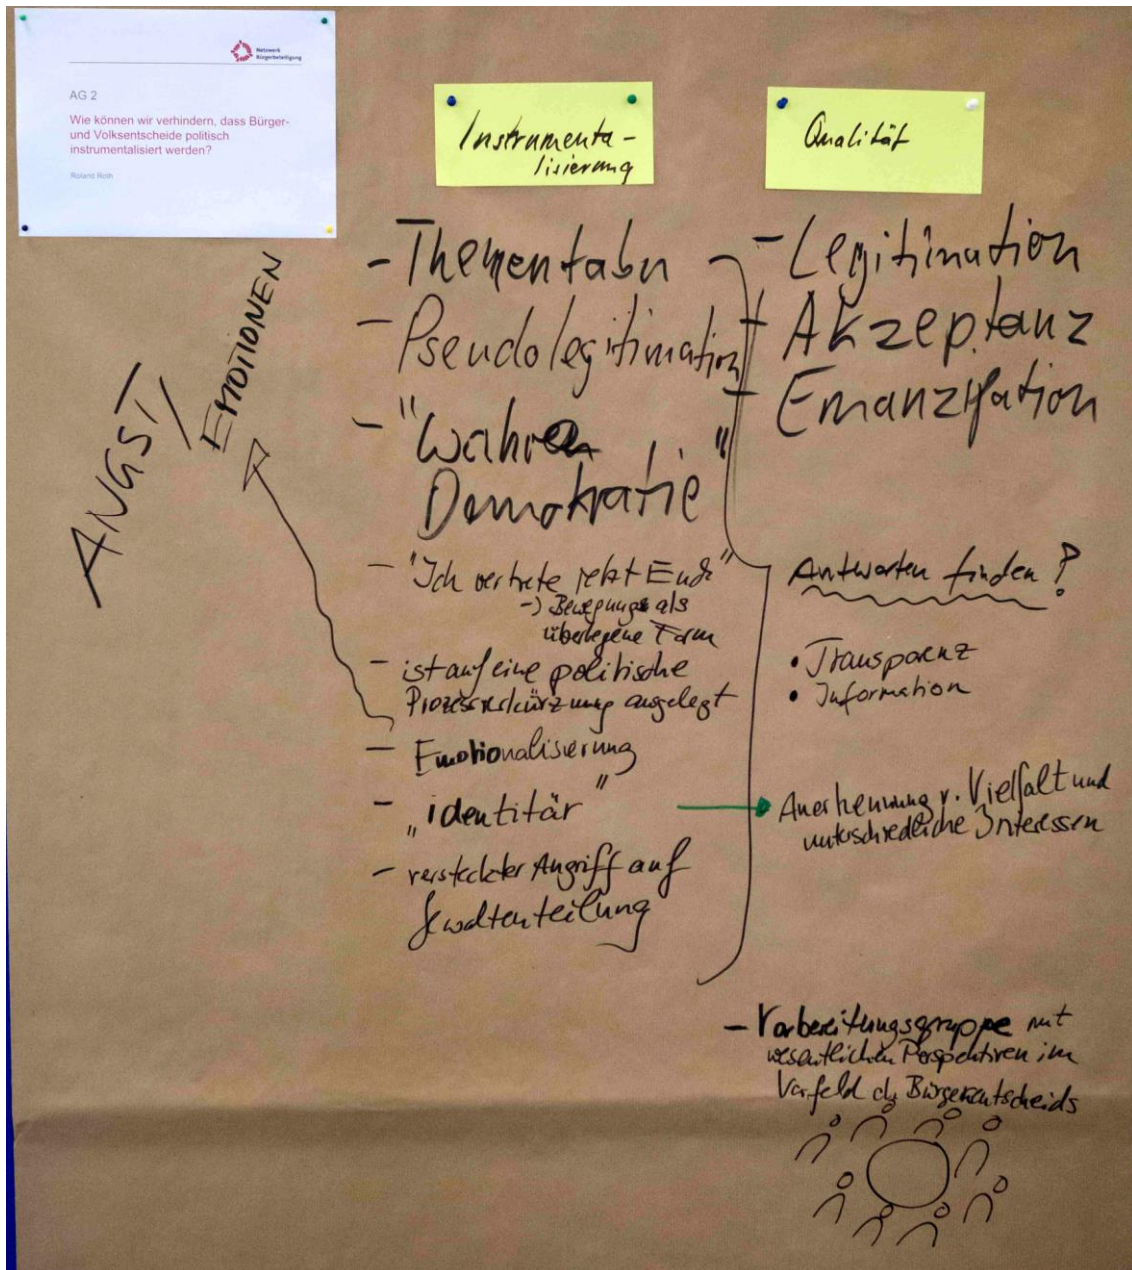 Netzwerk
Bürgerbeteiligung
AG 2
Wie können wir verhindern, dass Bürger-
und Volksentscheide politisch
instrumentalisiert werden?
Roland Roth
Instrumenta-
lisierung
Qualität
ANGST/
EMOTIONEN
- Thementabu
- Pseudolegitimation
- "Wahre
Demokratie"
- "Ich vertrete jetzt Euch"
-> Bewegung als
überlegene Form
- ist auf eine politische
Prozessverkürzung angelegt
- Emotionalisierung
- „identitär"
- versteckter Angriff auf
Gewaltenteilung
- Legitimation
+ Akzeptanz
- Emanzipation
Antworten finden?
• Transparenz
• Information
Anerkennung v. Vielfalt und
unterschiedliche Interessen
- Vorbereitungsgruppe mit
wesentlichen Perspektiven im
Vorfeld d. Bürgerentscheids